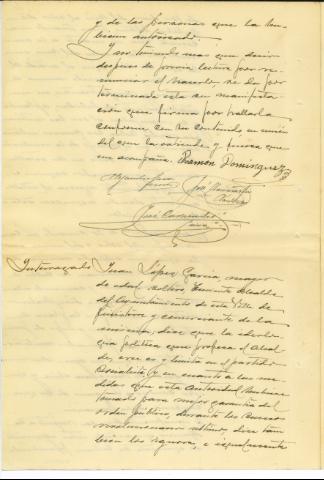 y de las personas que la hu-
biesen interesado.
Y no teniendo mas que decir
despues de previa lectura por re-
nunciar el hacerlo, se da por
terminada esta su manifesta
ción que firma por hallarla
conforme con su contenido en unión
del que la extiende y fuerza que
me acompaña. Ramon Dominguez
Interrogado Juan López Garcia, mayor
de edad, soltero, Teniente Alcalde
del Ayuntamiento de esta Villa de
y concerniente de la
misma, dice que la ideolo
gia politica que profesa el Alcal
de, cree es y milita en el partido
Socialista, y en cuanto a las me
didas que esta Autoridad hubiese
tomado para mejor garantia del
orden público, durante los sucesos
revolucionarios último, dice tam
bien las ignora, e igualmente